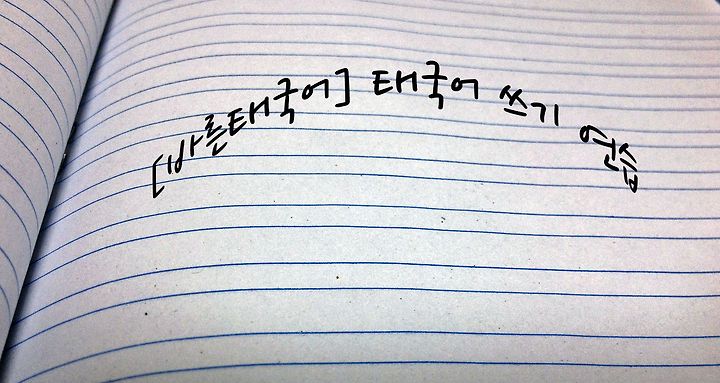 [바른태국어] 태국어 쓰기 연습